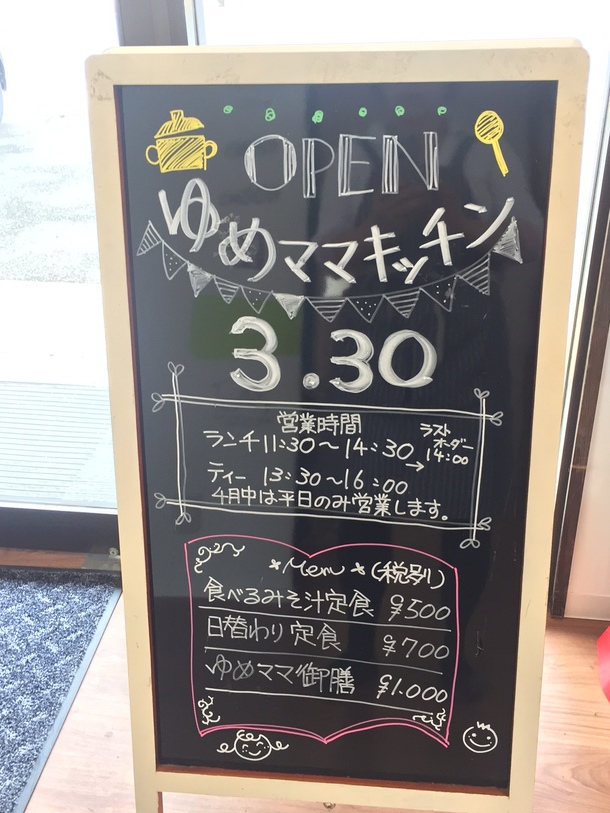 OPEN
ゆめママキッチン
3.30
営業時間
ランチ 11:30～14:30 → ラストオーダー 14:00
ティー 13:30～16:00
4月中は平日のみ営業します。
*Menu*(税別)
食べるみそ汁定食 ¥500
日替わり定食 ¥700
ゆめママ御膳 ¥1.000